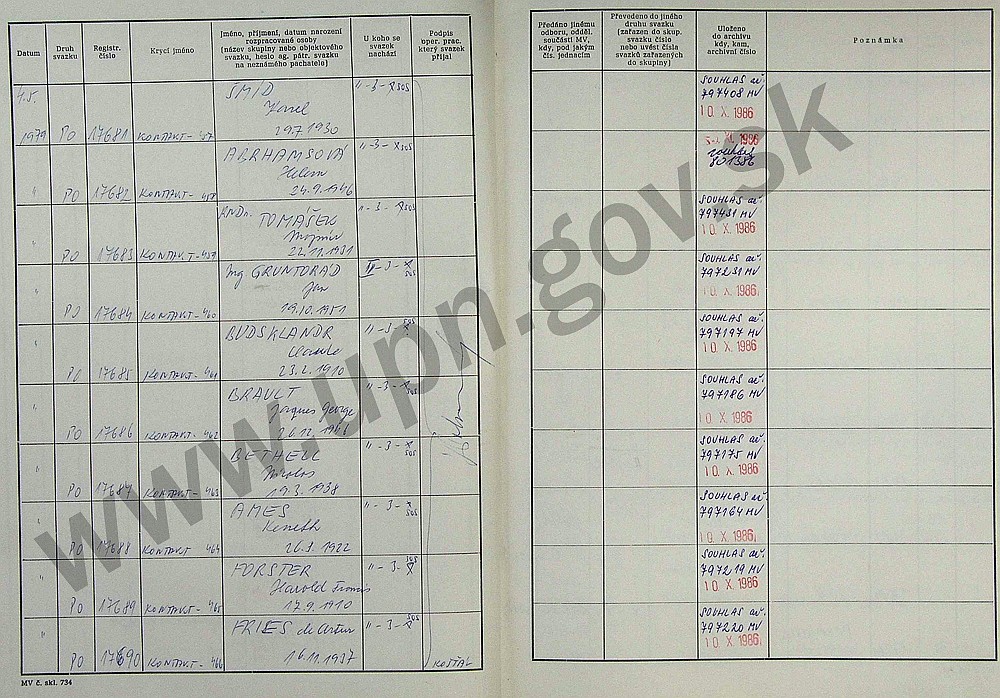 Datum
Druh svazku
Registr. číslo
Krycí jméno
Jméno, příjmení, datum narození
rozpracované osoby
(název skupiny nebo objektového
svazku, heslo ag. pátr. svazku
na neznámého pachatele)
U koho se
svazek
nachází
Podpis
oper. prac.
který svazek
přijal
4.5.
1979 PO 17681 KONTAKT - 457
SMID
Karel
29.7.1930
" - 3 - X SOS
" PO 17682 KONTAKT - 458
ABRHAMSOVÁ
Helena
24.9.1946
" - 3 - X SOS
" PO 17683 KONTAKT - 459
RNDr. TOMÁŠEK
Mojmír
22.11.1931
" - 3 - X SOS
" PO 17684 KONTAKT - 460
Ing GRUNTORÁD
Jan
19.10.1951
II - 3 - X SOS
" PO 17685 KONTAKT - 461
BUDSKLANDR
23.2.1910
" - 3 - X SOS
" PO 17686 KONTAKT - 462
BRAULT
Jacques George
" - 3 - X SOS
" PO 17687 KONTAKT - 463
BETHELL
Nicolas
19.3.1938
" - 3 - X SOS
" PO 17688 KONTAKT 464
AMES
Kenneth
26.9.1922
" - 3 - X SOS
" PO 17689 KONTAKT - 465
FORSTER
Harold Francis
17.9.1910
" - 3 - X SOS
" PO 17690 KONTAKT - 466
FRIES de Artur
16.11.1937
" - 3 - X SOS
KOŠŤÁL
MV č. skl. 734
Předáno jinému
odboru, odděl.
součásti MV,
kdy, pod jakým
čís. jednacím
Převedeno do jiného
druhu svazku
(zařazen do skup.
svazku číslo
nebo uvést čísla
svazků zařazených
do skupiny)
Uloženo
do archivu
kdy, kam,
archivní číslo
Poznámka
SOUHLAS ař.
797408 MV
10. X. 1986
XI. 1986
souhlas
801386
SOUHLAS ař.
797431 MV
10. X. 1986
SOUHLAS ař.
797231 MV
10. X. 1986
SOUHLAS ař.
797197 MV
10. X. 1986
SOUHLAS ař.
797186 MV
10. X. 1986
SOUHLAS ař.
797175 MV
10. X. 1986
SOUHLAS ař.
797164 MV
10. X. 1986
SOUHLAS ař.
797219 MV
10. X. 1986
SOUHLAS ař.
797220 MV
10. X. 1986
www.upn.gov.sk